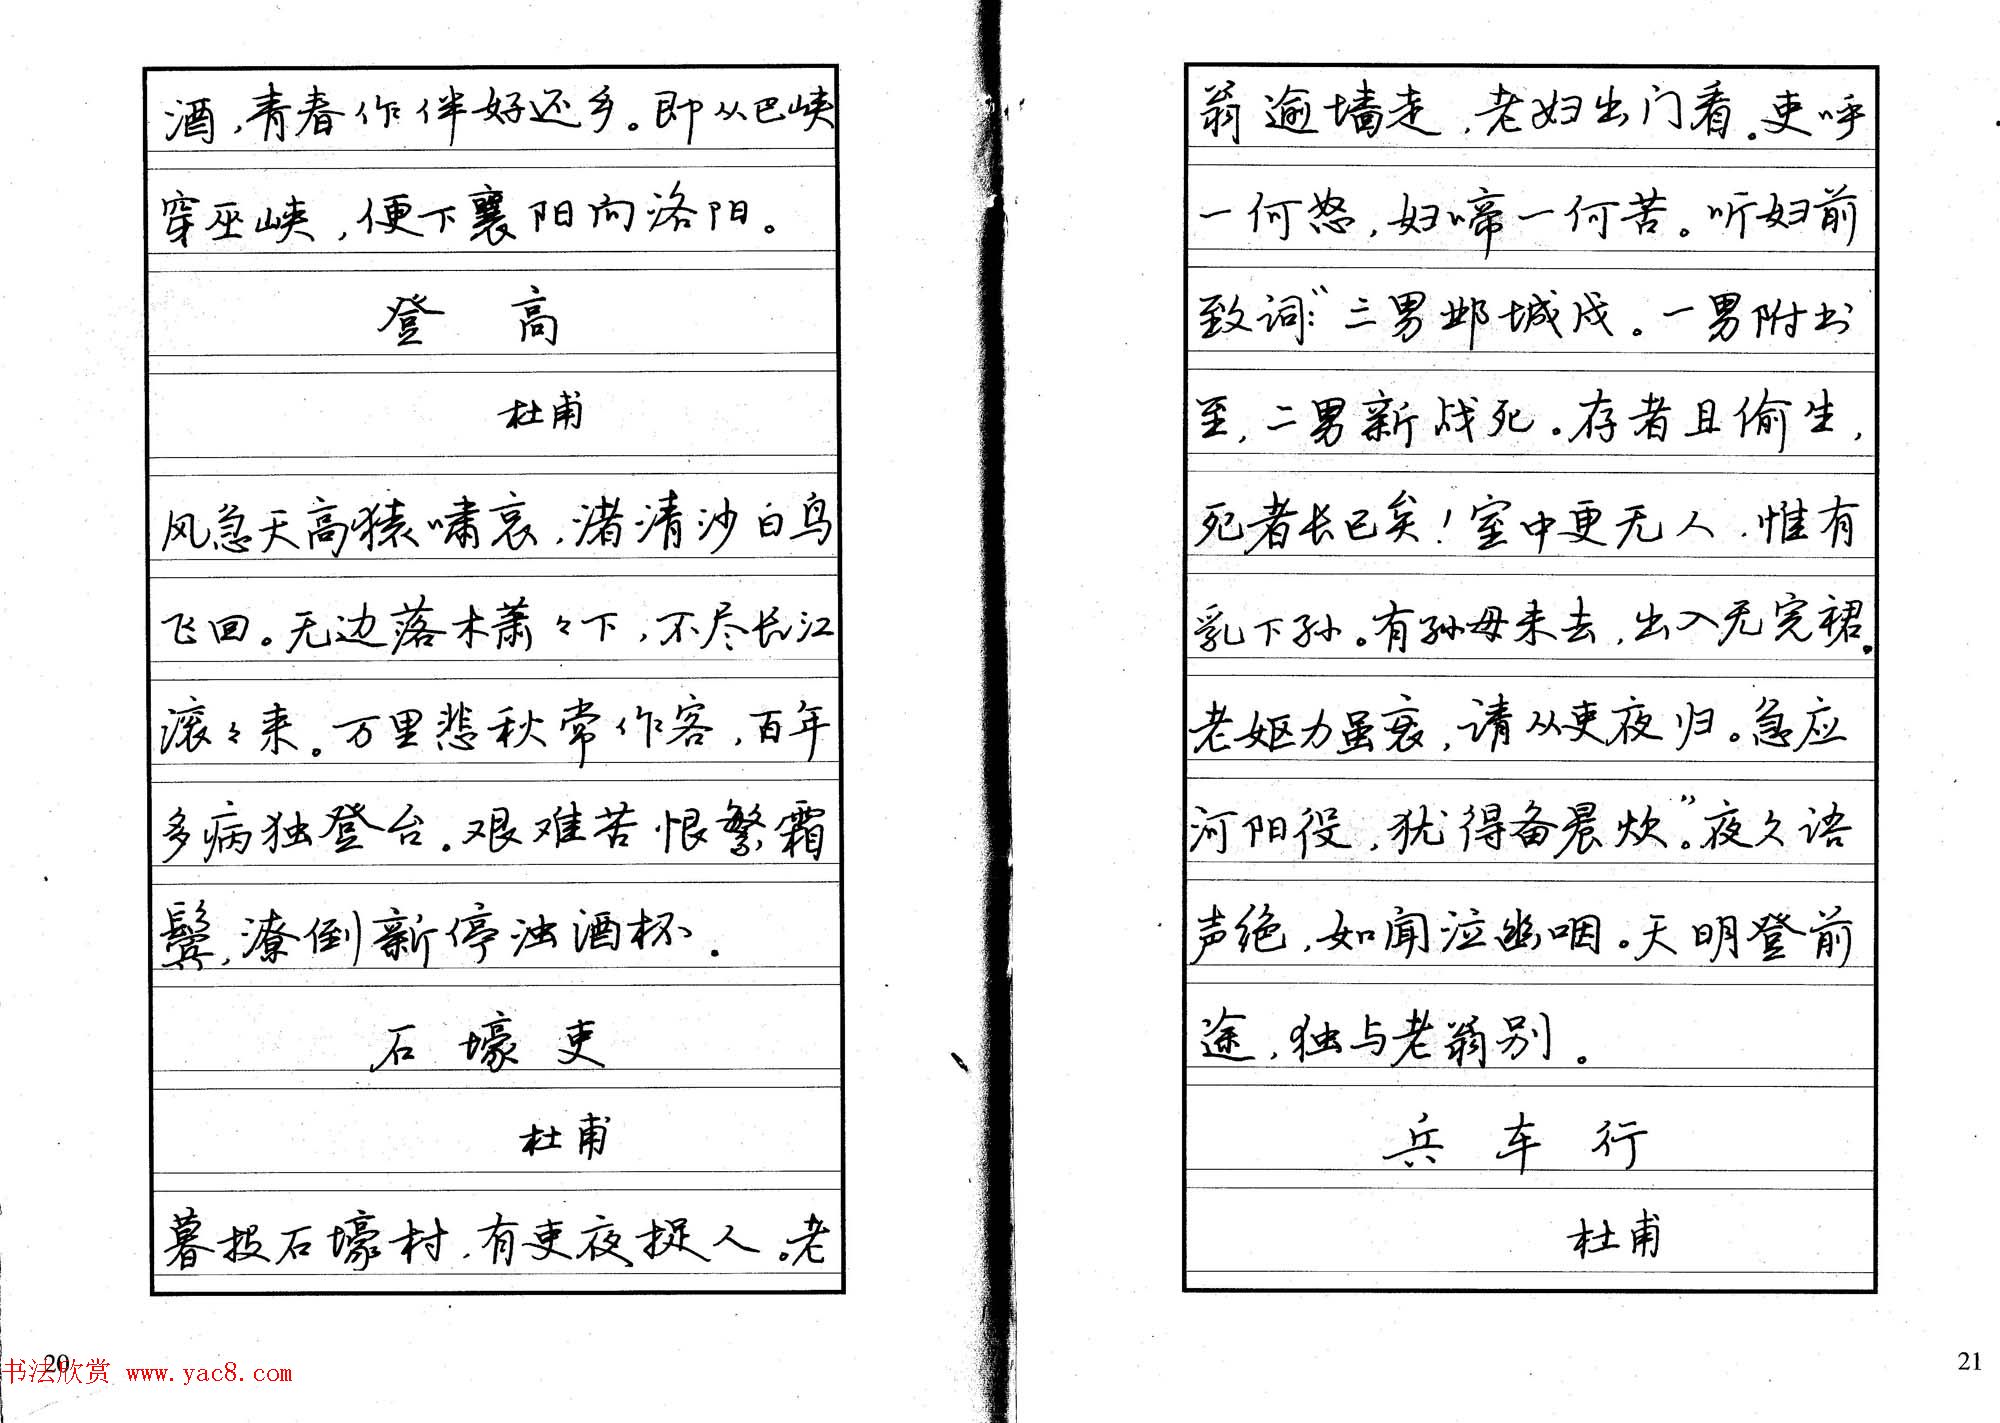 酒,青春作伴好还乡。即从巴峡
穿巫峡,便下襄阳向洛阳。
登高
杜甫
风急天高猿啸哀,渚清沙白鸟
飞回。无边落木萧々下,不尽长江
滚々来。万里悲秋常作客,百年
多病独登台。艰难苦恨繁霜
鬓,潦倒新停浊酒杯。
石壕吏
杜甫
暮投石壕村,有吏夜捉人。老
20
书法欣赏 www.yac8.com
翁逾墙走,老妇出门看。吏呼
一何怒,妇啼一何苦。听妇前
致词:“三男邺城戍。一男附书
至,二男新战死。存者且偷生,
死者长已矣!室中更无人,惟有
乳下孙。有孙母未去,出入无完裙。
老妪力虽衰,请从吏夜归。急应
河阳役,犹得备晨炊”。夜久语
声绝,如闻泣幽咽。天明登前
途,独与老翁别。
兵车行
杜甫
21